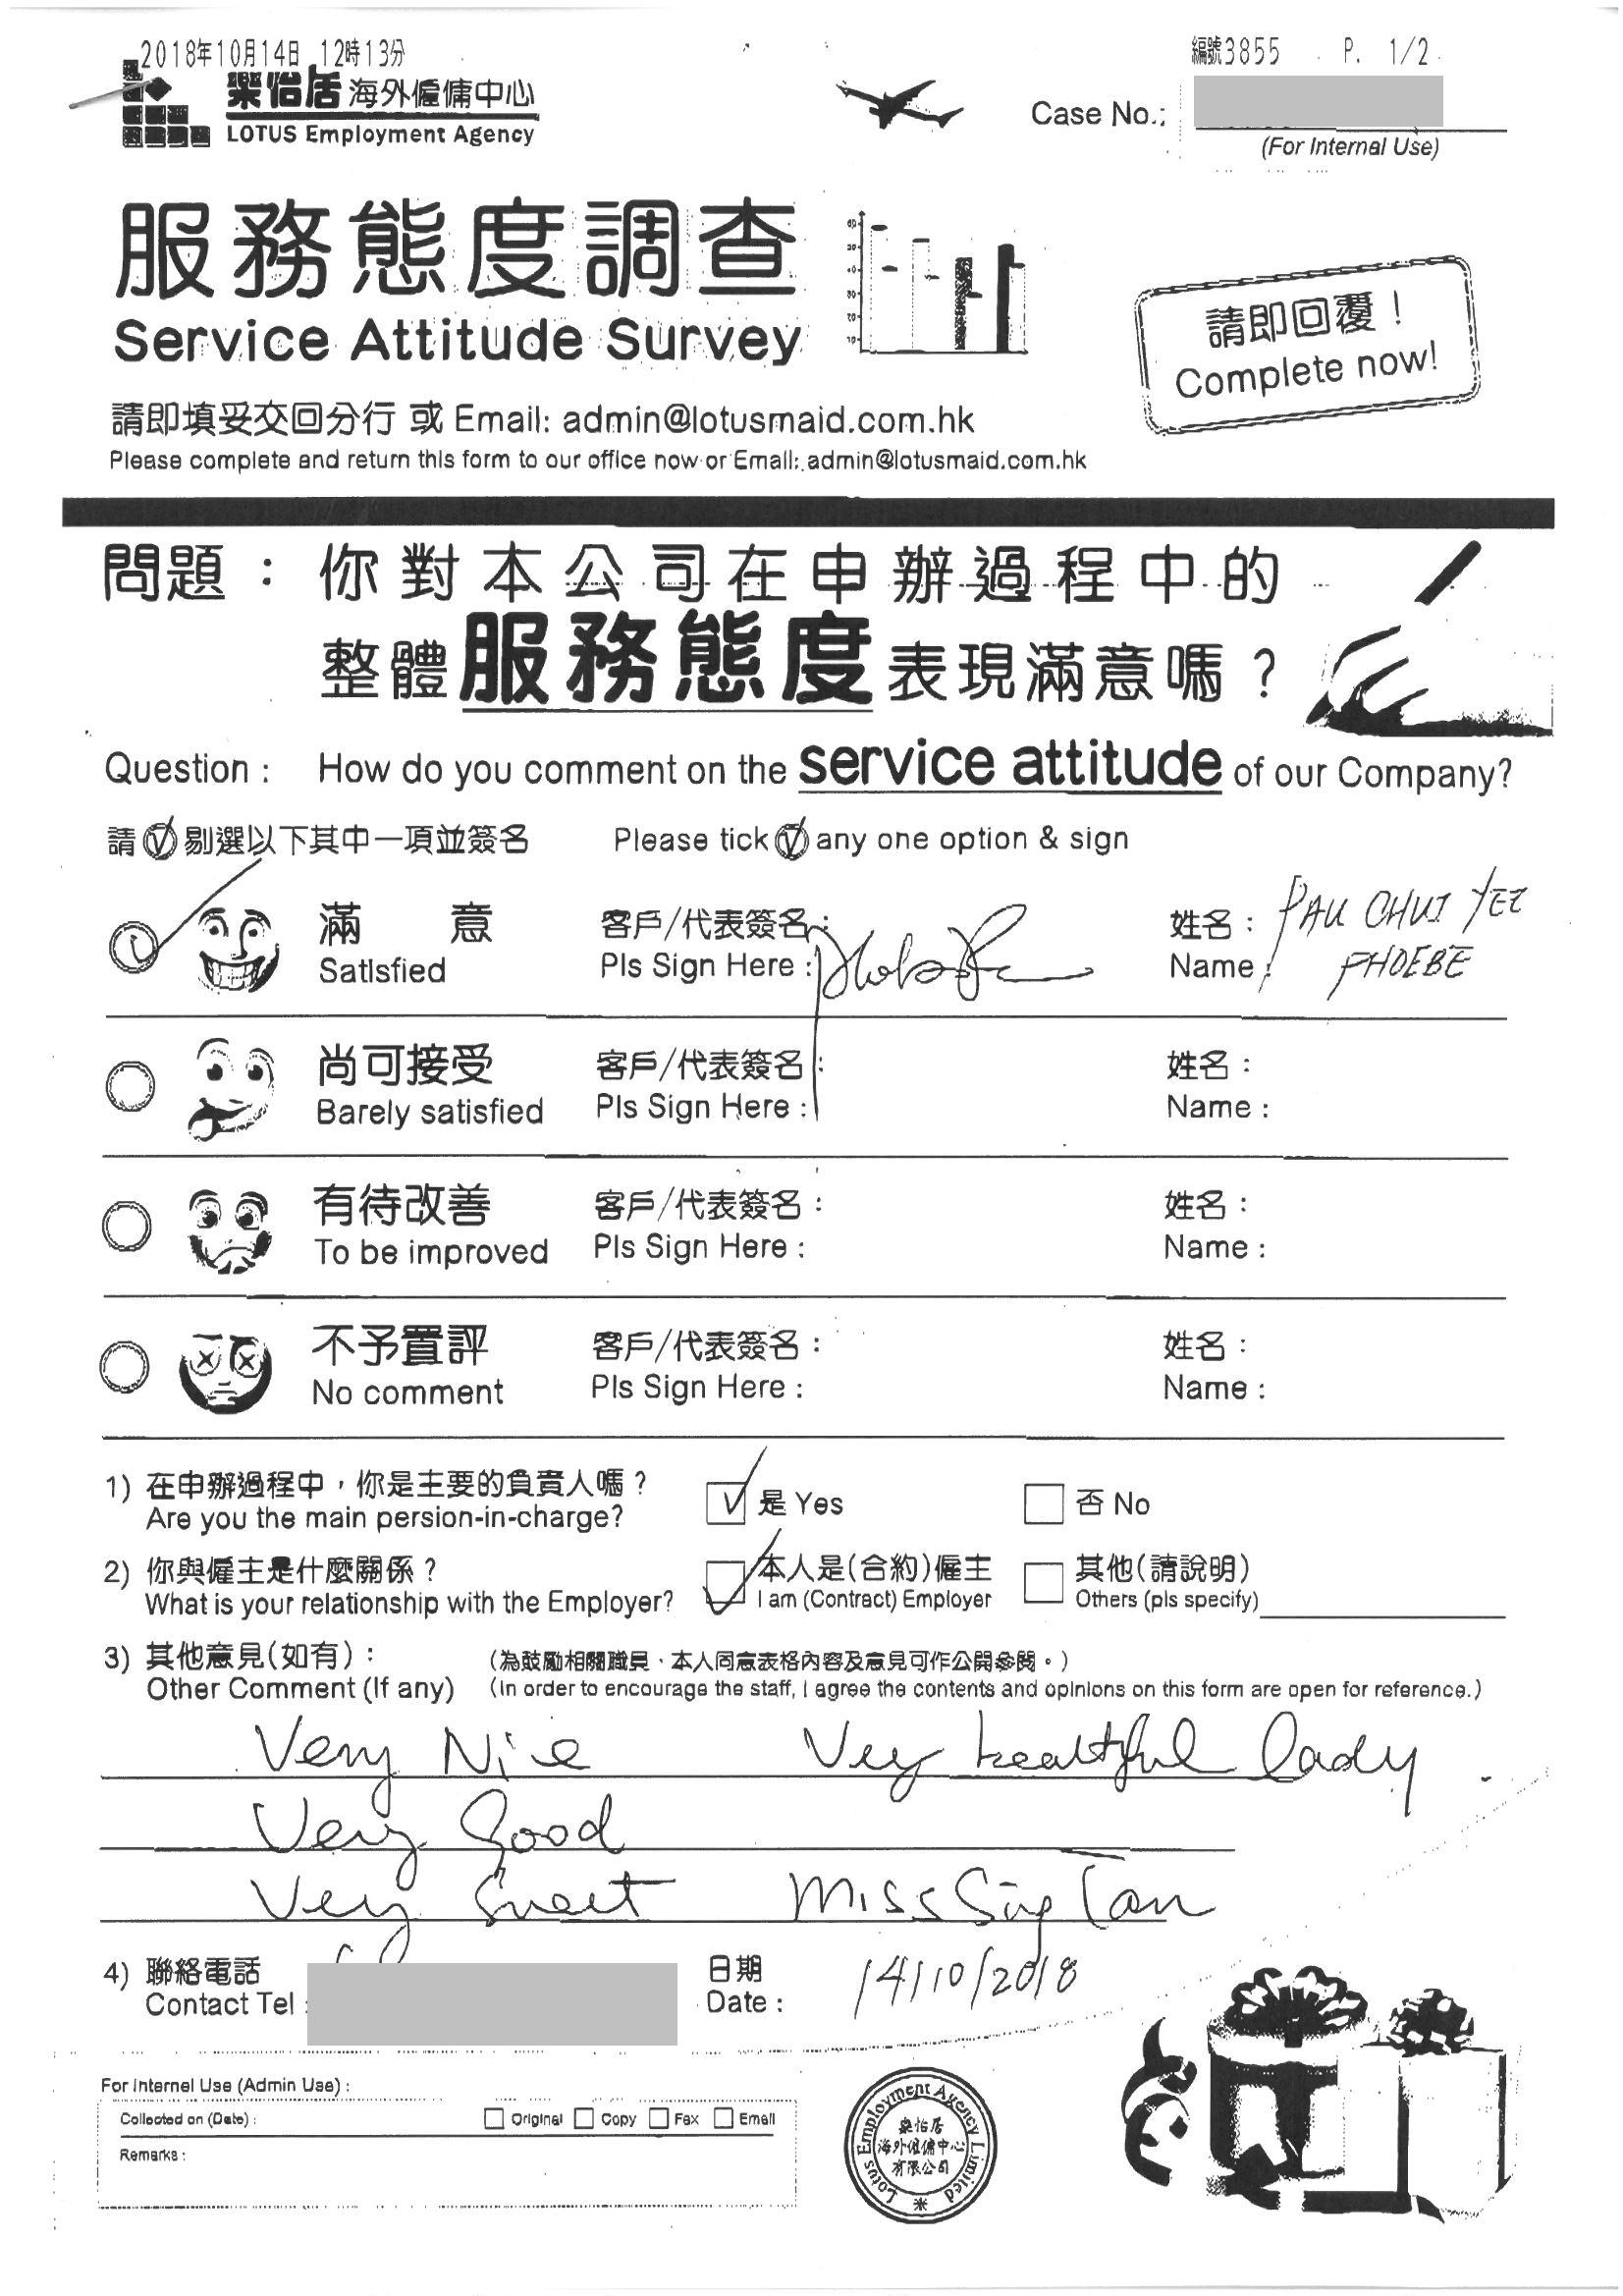 2018年10月14日 12時13分
編號3855 P. 1/2
樂怡居 海外僱傭中心
LOTUS Employment Agency
Case No.:
(For Internal Use)
服務態度調查
Service Attitude Survey
請即回覆！
Complete now!
請即填妥交回分行 或 Email: admin@lotusmaid.com.hk
Please complete and return this form to our office now or Email: admin@lotusmaid.com.hk
問題：你對本公司在申辦過程中的
整體服務態度表現滿意嗎？
Question : How do you comment on the service attitude of our Company?
請 ✓ 剔選以下其中一項並簽名 Please tick ✓ any one option & sign
滿意 客戶/代表簽名： 姓名： PAU CHUI YEE
Satisfied Pls Sign Here : Name : PHOEBE
尚可接受 客戶/代表簽名： 姓名：
Barely satisfied Pls Sign Here : Name :
有待改善 客戶/代表簽名： 姓名：
To be improved Pls Sign Here : Name :
不予置評 客戶/代表簽名： 姓名：
No comment Pls Sign Here : Name :
1) 在申辦過程中，你是主要的負責人嗎？ 是 Yes 否 No
Are you the main persion-in-charge?
2) 你與僱主是什麼關係？ 本人是(合約)僱主 其他(請說明)
What is your relationship with the Employer? I am (Contract) Employer Others (pls specify)
3) 其他意見(如有)： (為鼓勵相關職員，本人同意表格內容及意見可作公開參閱。)
Other Comment (If any) (In order to encourage the staff, I agree the contents and opinions on this form are open for reference.)
Very Nice Very beautiful lady
Very Good
Very Smart Miss Sing Tan
4) 聯絡電話 日期
Contact Tel : Date : 14/10/2018
For Internel Use (Admin Use) :
Collected on (Date) : Original Copy Fax Email
Remarks :
Lotus Employment Agency Limited
樂怡居
海外僱傭中心
有限公司